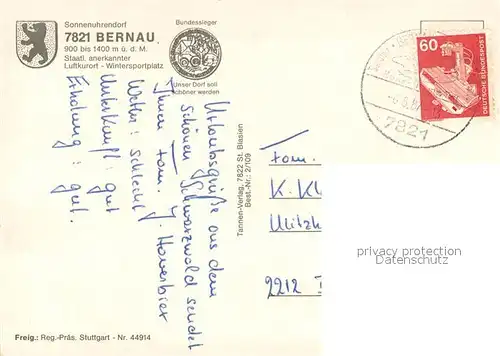 Sonnenuhrendorf
7821 BERNAU
900 bis 1400 m ü. d. M.
Staatl. anerkannter
Luftkurort - Wintersportplatz
Bundessieger
Unser Dorf soll
schöner werden
60
DEUTSCHE BUNDESPOST
7821
Urlaubsgrüße aus dem
schönen Schwarzwald sendet
Ihnen Fam. J.
Wetter: schlecht
Unterkunft: gut
Erholung: gut.
Tannen-Verlag, 7822 St. Blasien
Best.-Nr.: 2/109
Fam.
K. Kl
2212
privacy overlay
Datenschutz
Freig.: Reg.-Präs. Stuttgart - Nr. 44914